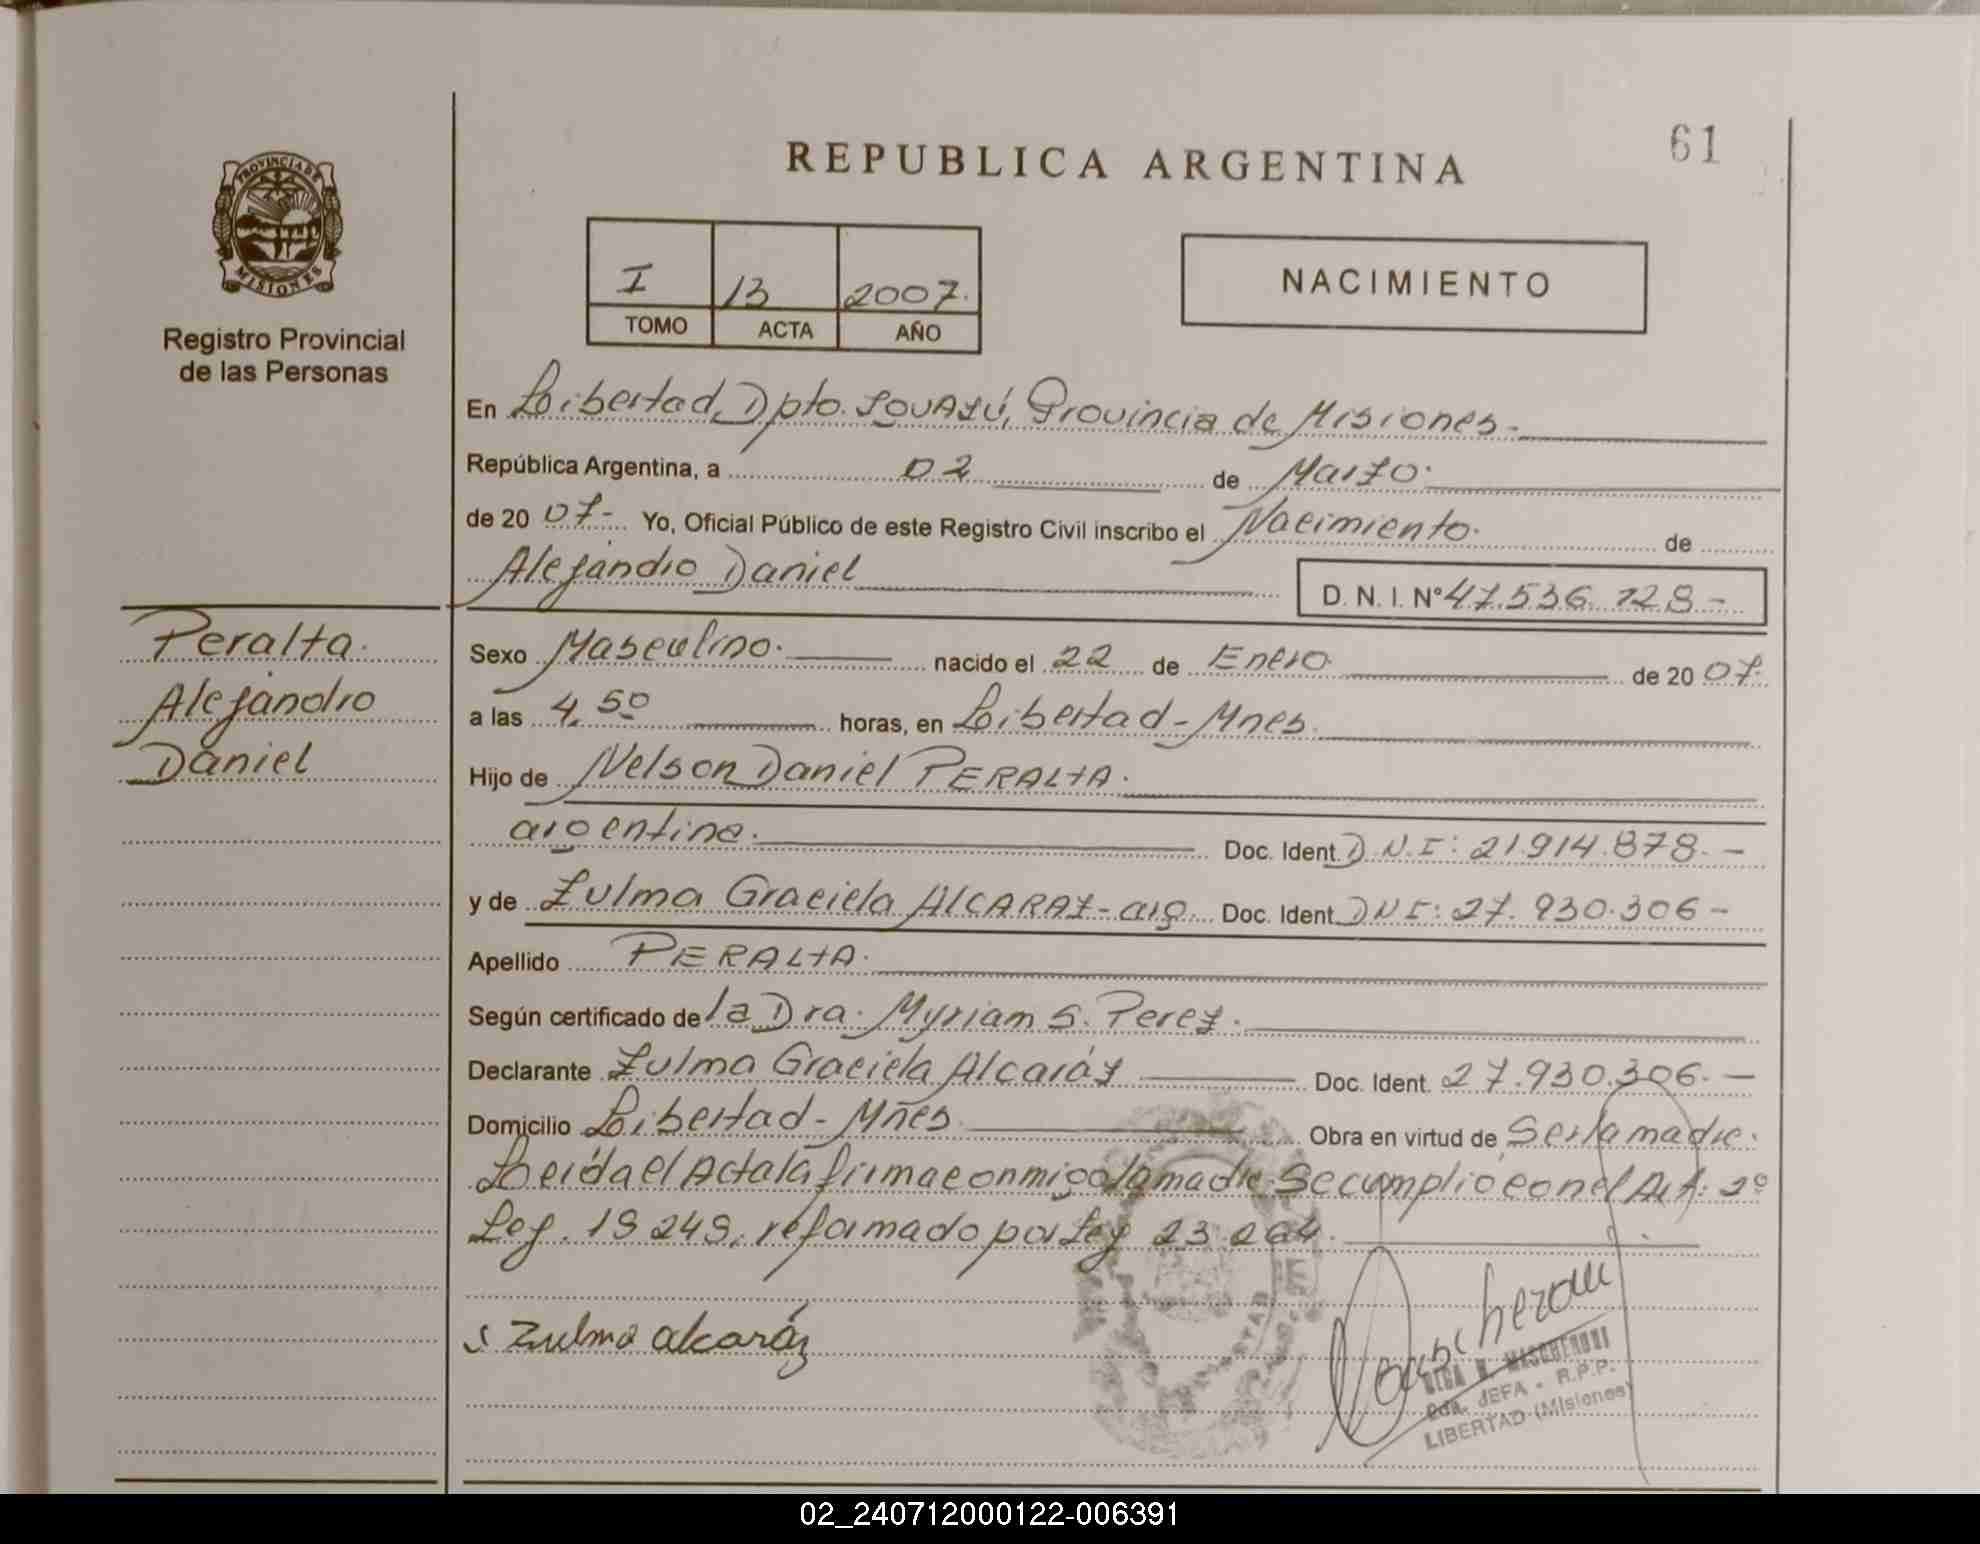 61
REPUBLICA ARGENTINA
PROVINCIA DE
MISIONES
Registro Provincial
de las Personas
I 13 2007.
TOMO ACTA AÑO
NACIMIENTO
En Libertad, Dpto. IGUAZÚ, Provincia de Misiones.
República Argentina, a 02 de Marzo.
de 20 07- Yo, Oficial Público de este Registro Civil inscribo el Nacimiento. de
Alejandro Daniel
D. N. I. N° 47.536.128-
Peralta.
Alejandro
Daniel
Sexo Masculino. nacido el 22 de Enero de 20 07.
a las 4,50 horas, en Libertad-Mnes.
Hijo de Nelson Daniel PERALTA.
argentino. Doc. Ident. D.N.I: 21.914.878.-
y de Zulma Graciela ALCARAZ-arg. Doc. Ident. DNI: 27.930.306-
Apellido PERALTA.
Según certificado de la Dra. Myriam S. Perez.
Declarante Zulma Graciela Alcaráz Doc. Ident. 27.930.306.-
Domicilio Libertad-Mñes Obra en virtud de Ser la madre.
Leída el Acta la firma conmigo la madre. Se cumplió con el Art: 2°
Ley. 19249, reformado por Ley 23.264.
Zulma alcaráz
Mascheroni
MASCHERONI
JEFA - R.P.P.
LIBERTAD (Misiones)
02_240712000122-006391